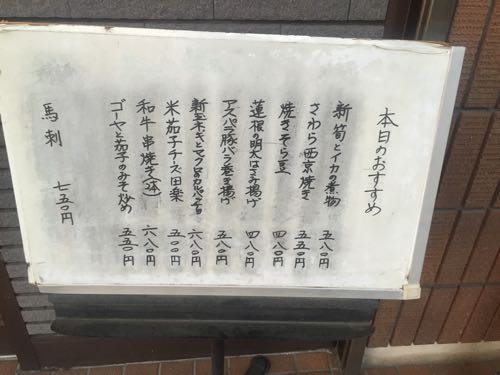 本日のおすすめ
新筍とイカの煮物 五八〇円
さわら西京焼き 五五〇円
焼きそら豆 四八〇円
蓮根の明太はさみ揚げ 四八〇円
アスパラ豚バラ巻き揚げ 五八〇円
新玉ネギとマグロのカルパッチョ 六八〇円
米茄子チーズ田楽 五〇〇円
和牛串焼き(2本) 六八〇円
ゴーヤと茄子のみそ炒め 五五〇円
馬刺 七五〇円